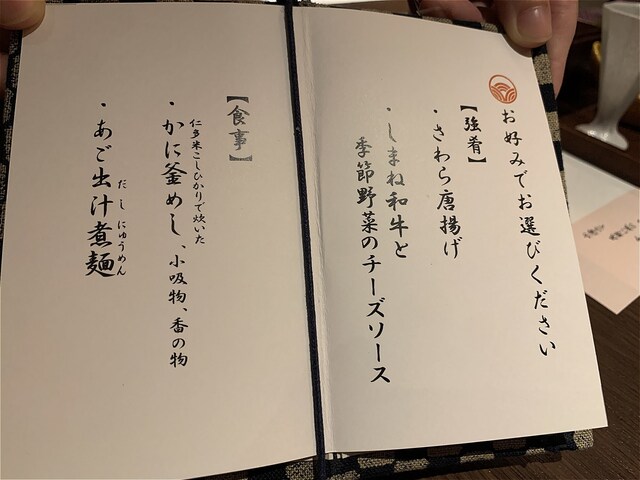 お好みでお選びください
【強肴】
・さわら唐揚げ
・しまね和牛と
季節野菜のチーズソース
【食事】
仁多米こしひかりで炊いた
・かに釜めし、小吸物、香の物
だし にゅうめん
・あご出汁煮麺